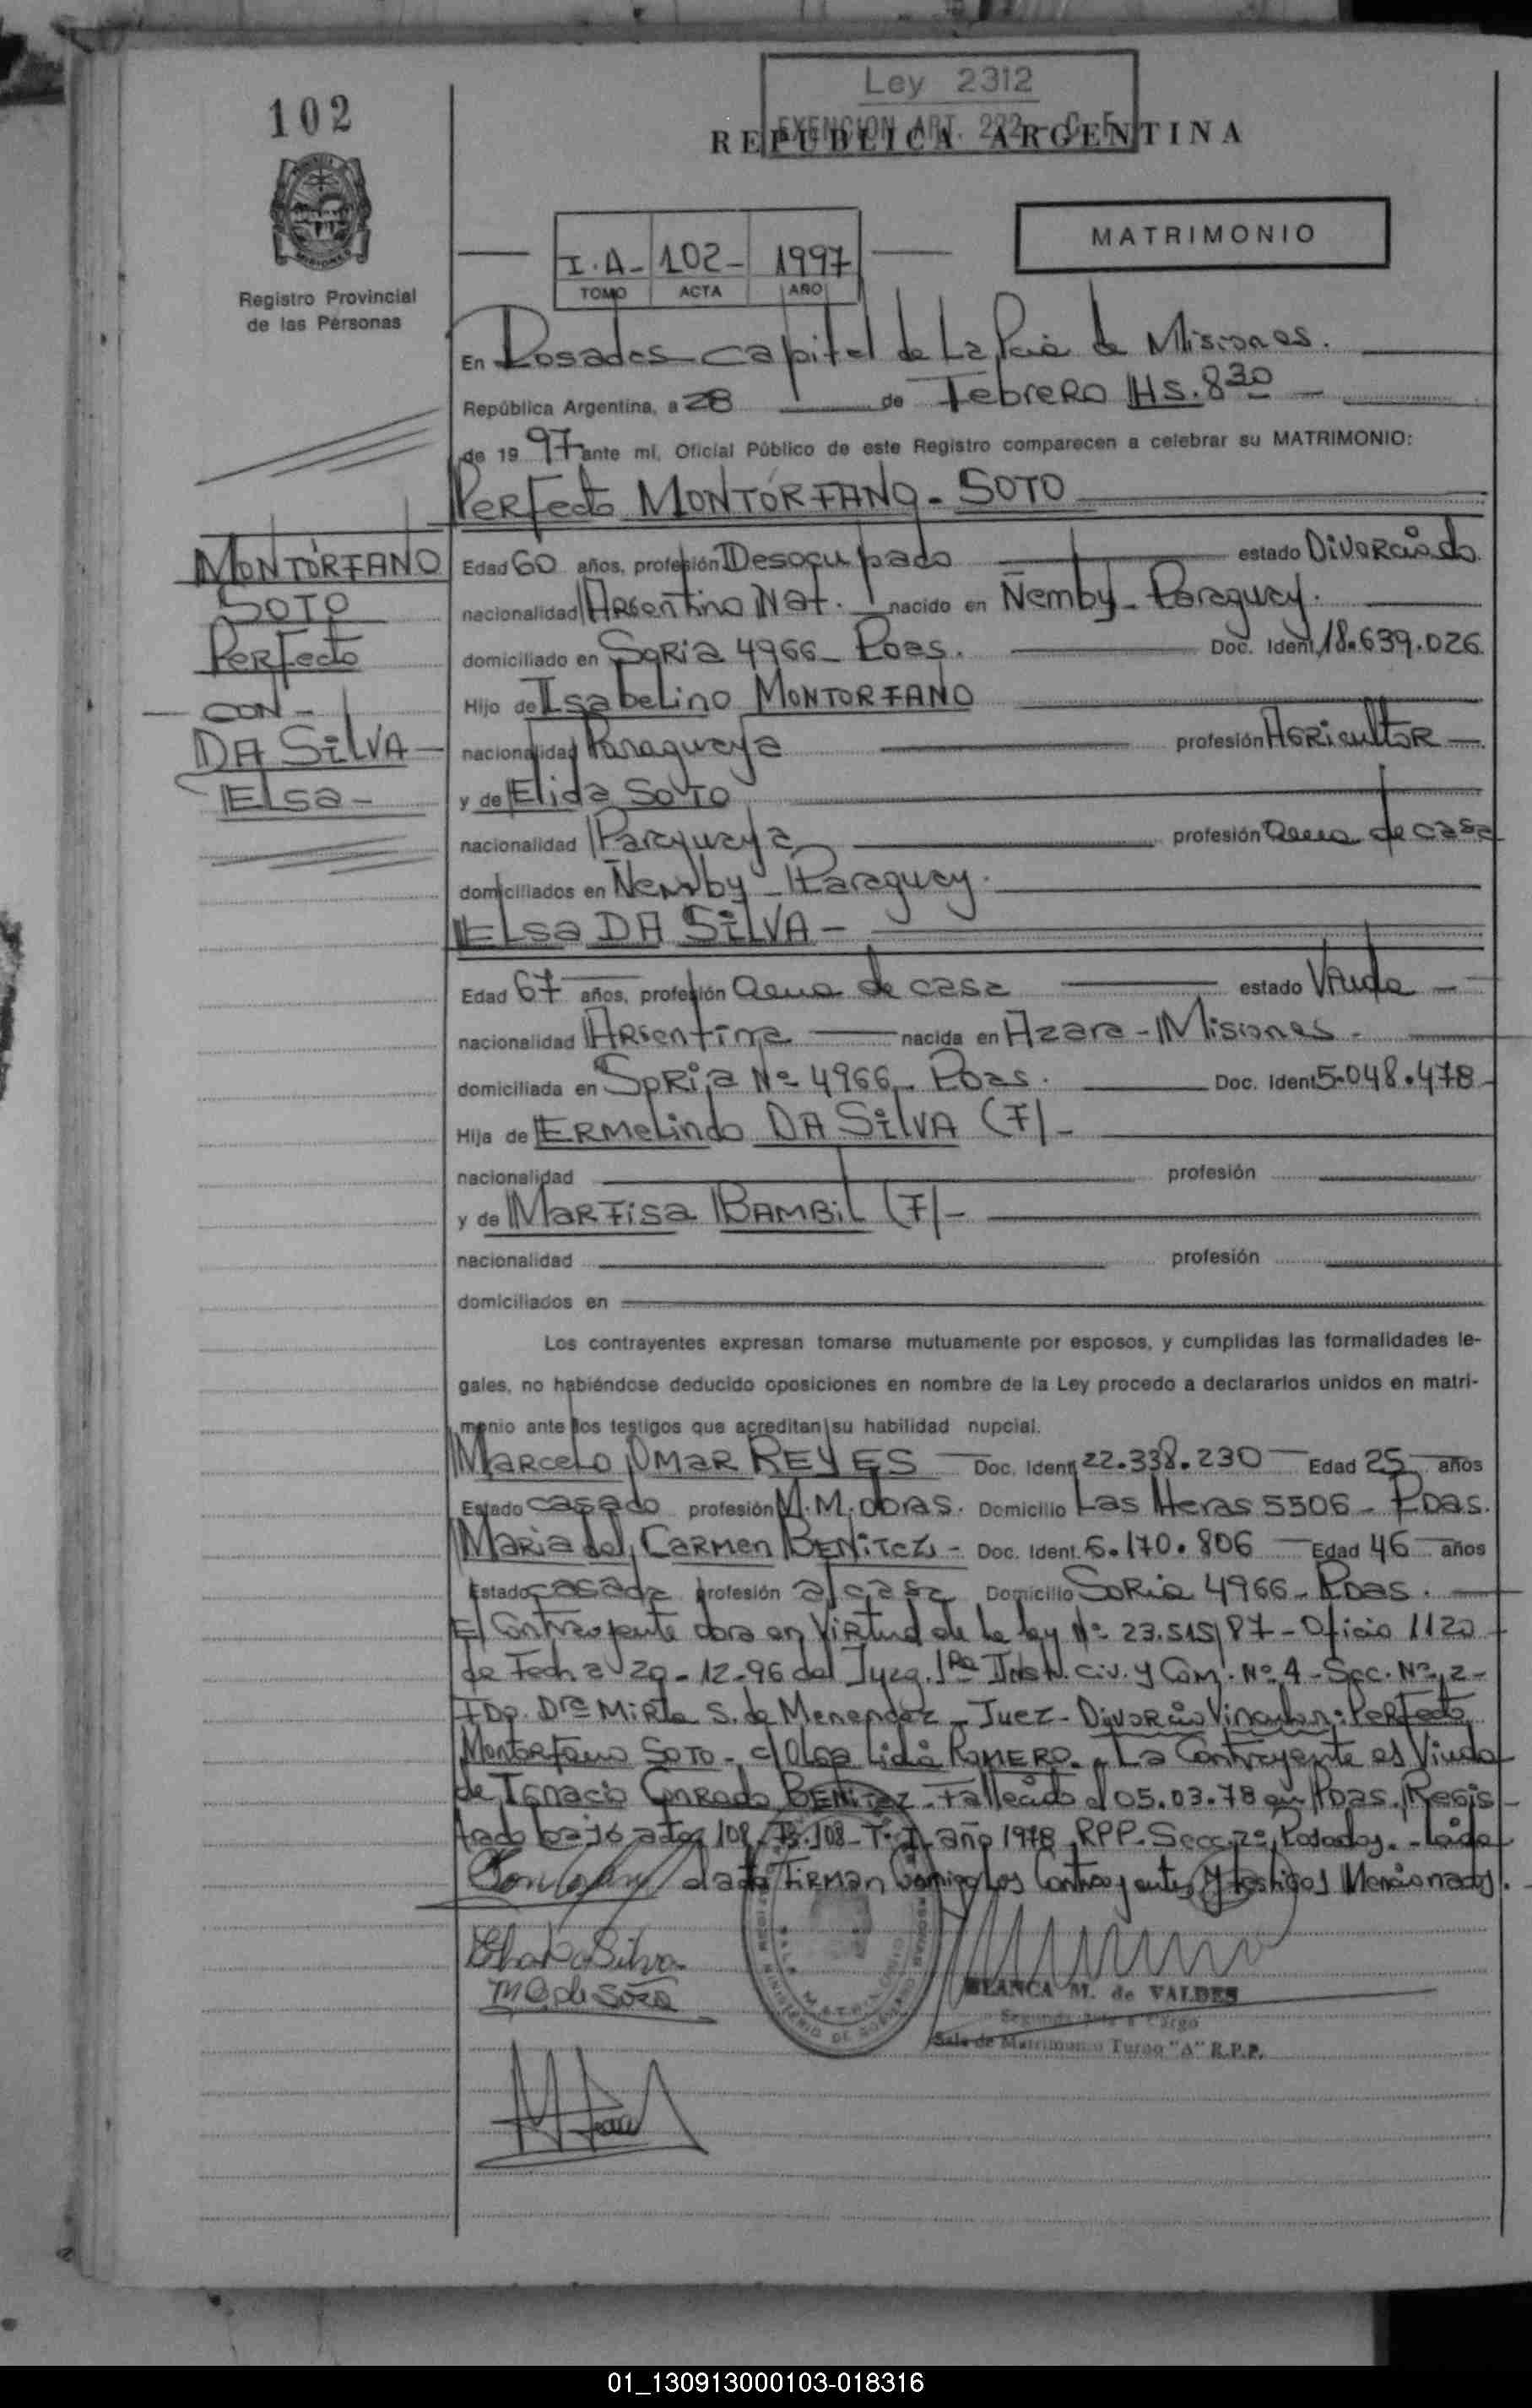 102
Ley 2312
EXENCION ART. 222 C. F.
REPUBLICA ARGENTINA
MISIONES
Registro Provincial
de las Personas
MATRIMONIO
I.A- 102- 1997
TOMO ACTA AÑO
En Posadas Capital de La Pcia de Misiones.
República Argentina, a 28 de Febrero Hs. 8 30
de 19 97 ante mi, Oficial Público de este Registro comparecen a celebrar su MATRIMONIO:
Perfecto MONTÓRFANO - SOTO
MONTÓRFANO
SOTO
Perfecto
- CON -
DA SiLVA -
Elsa -
Edad 60 años, profesión Desocupado estado Divorciado
nacionalidad Argentino Nat. nacido en Ñemby - Paraguay.
domiciliado en Soria 4966 - Pdas. Doc. Ident. 18.639.026
Hijo de Isabelino MONTORFANO
nacionalidad Paraguaya profesión Agricultor -
y de Elida SOTO
nacionalidad Paraguaya profesión ama de casa
domiciliados en Ñemby - Paraguay.
Elsa DA SiLVA -
Edad 67 años, profesión ama de casa estado Viuda -
nacionalidad Argentina nacida en Azara - Misiones -
domiciliada en Soria Nº 4966 - Pdas. Doc. Ident 5.048.478
Hija de Ermelindo DA SiLVA (F) -
nacionalidad profesión
y de Marfisa BAMBiL (F) -
nacionalidad profesión
domiciliados en
Los contrayentes expresan tomarse mutuamente por esposos, y cumplidas las formalidades le-
gales, no habiéndose deducido oposiciones en nombre de la Ley procedo a declararlos unidos en matri-
monio ante los testigos que acreditan su habilidad nupcial.
Marcelo Omar REYES Doc. Ident 22.338.230 Edad 25 años
Estado casado profesión M.M. obras. Domicilio Las Heras 5506 - Pdas.
Maria del Carmen BENiTEZ - Doc. Ident. 6.170.806 Edad 46 años
Estado casada profesión a/casa Domicilio Soria 4966 - Pdas.
El Contrayente obra en Virtud de la ley Nº 23.515/87 - Oficio 1120
de Fecha 20-12-96 del Juzg. 1ra Inst. Civ. y Com. Nº 4 - Sec. Nº 2 -
FDO. Dra Mirta S. de Menendez - Juez - Divorcio Vincular: Perfecto
Montorfano SOTO - c/ Olga Lidia ROMERO. - La Contrayente es Viuda
de Ignacio Conrado BENiTEZ - Fallecido el 05.03.78 en Pdas. Regis -
trado bajo acta 108 - Tº I - año 1978 RPP. Secc. 2º Posadas. - Leida
el acta FiRMan Conmigo Los Contrayentes y testigos Mencionados.
Elsa Da Silva
BLANCA M. de VALDES
Segunda Jefe a Cargo
Sala de Matrimonio Turno "A" R.P.P.
01_130913000103-018316